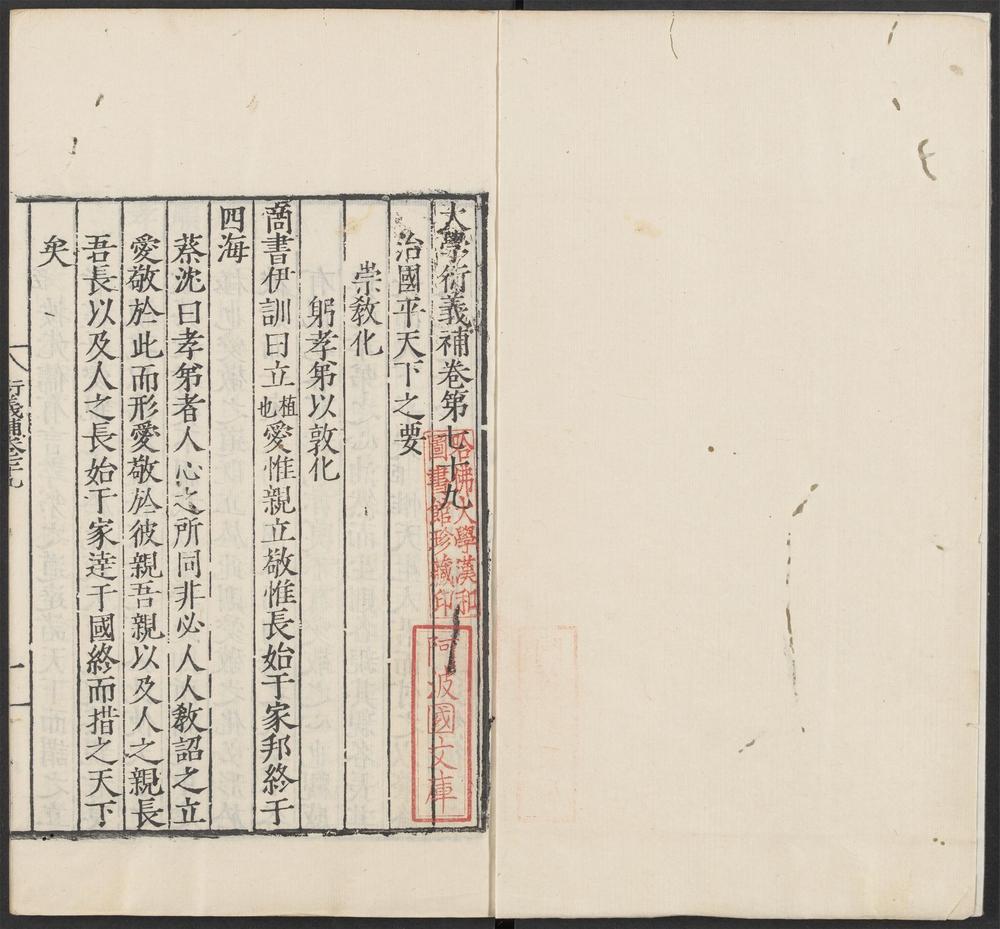 大學衍義補卷第七十九
治國平天下之要
崇敎化
躬孝弟以敦化
商書伊訓曰立植也愛惟親立敬惟長始于家邦終于
四海
蔡沈曰孝弟者人心之所同非必人人敎詔之立
愛敬於此而形愛敬於彼親吾親以及人之親長
吾長以及人之長始于家達于國終而措之天下
矣
哈佛大學漢和
圖書館珍藏印
阿波國文庫